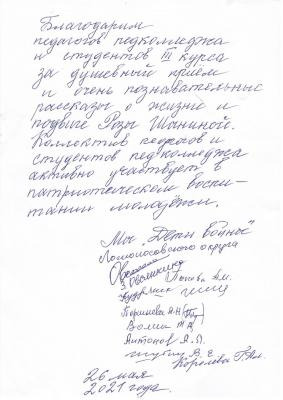 Благодарим
педагогов педколледжа
и студентов III курса
за душевный приём
и очень познавательные
рассказы о жизни и
подвиге Розы Шаниной.
Коллектив педагогов и
студентов педколледжа
активно участвует в
патриотическом воспи-
тании молодёжи.
Мы "Дети войны"
Ломоносовского округа
Антонов А.П.
В. Е.
Королева Г. Ал.
26 мая
2021 года.